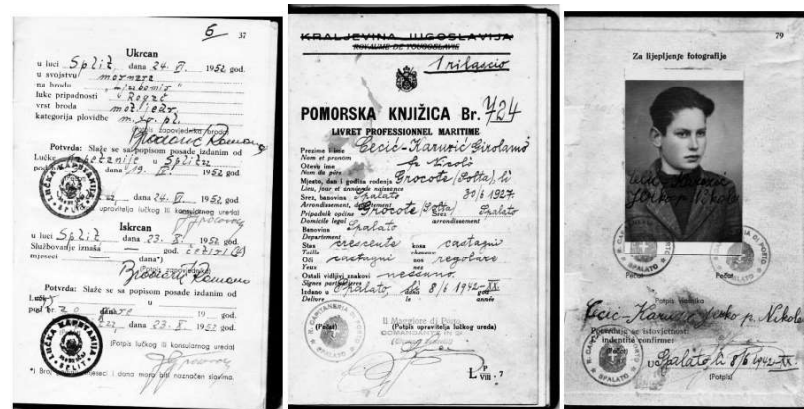 6 37
Ukrcan
u luci Split, dana 24. VI. 1952 god.
u svojstvu mornara
na brodu "Ljubomir"
luke pripadnosti Rogač
vrst broda motorjedr.
kategorija plovidbe m. o. pl.
(Potpis zapovjednika broda)
Potvrda: Slaže se sa popisom posade izdanim od
Lučke kapetanije u Splitu
pod br. dana 19. VI. 1952 god.
dana 24. VI. 1952 god.
(Potpis upravitelja lučkog ili konsularnog ureda)
LUČKA KAPETANIJA
SPLIT
Iskrcan
u luci Split dana 23. X. 1952 god.
Službovanje iznaša god.
mjeseci dana*)
(Potpis zapovjednika)
Potvrda: Slaže se sa popisom posade izdanim od
Lučke u
pod br. 20 dana 19 god.
dana 23. X. 1952 god.
(Potpis upravitelja lučkog ili konsularnog ureda)
LUČKA KAPETANIJA
SPLIT
*) Broj mjeseci i dana mora biti naznačen slovima.
KRALJEVINA JUGOSLAVIJA
ROYAUME DE YOUGOSLAVIE
Trilascio
POMORSKA KNJIŽICA Br. 724
LIVRET PROFESSIONNEL MARITIME
Prezime i ime Cecić-Karuzić Girolamo
Nom et prenom
Očevo ime fu Nicolò
Nom du père
Mjesto, dan i godina rođenja Grocote (Solta), li
Lieu, jour et année de naissance
Srez, banovina Spalato 30/6 1927.
Arrondissement, département
Pripadnik općine Grocote (Solta) Srez Spalato
Domicile legal arrondissement
Banovina Spalato
Departement
Stas crescente kosa castagni
Taille cheveux
Oči castagni nos regolare
Yeux nez
Ostali vidljivi znakovi nessuno
Signes particuliers
Izdano u Spalato, li 8/6 1942-XX god.
Delivre le année
CAPITANERIA DI PORTO
SPALATO
(Pečat)
Il Maggiore di Porto
COMANDANTE
(Potpis upravitelja lučkog ureda)
L. P. VIII - 7
79
Za lijepljenje fotografije
Cecić-Karuzić
Jerko p. Nikole
CAPITANERIA DI PORTO
SPALATO
Pečat
Pečat
Potpis vlasnika
Cecić-Karuzić Jerko p. Nikole
Potvrđuje se istovjetnost:
L' indentité confirmer
u Spalato, li 8/6 1942-XX.
(Potpis)
CAPITANERIA DI PORTO
SPALATO